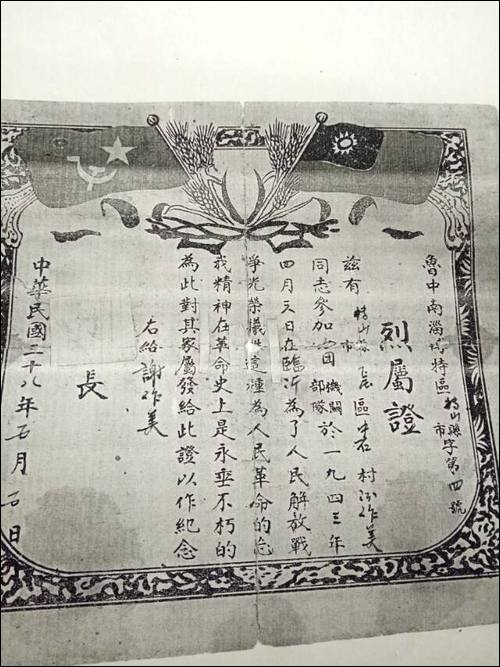 魯中南淄博特區博山縣市字第四號
烈屬證
兹有博山縣市區村作美
同志參加機關部隊於一九四三年
四月三日在臨沂為了人民解放戰
爭光榮犧牲這種為人民革命的忘
我精神在革命史上是永垂不朽的
為此對其家屬發給此證以作紀念
右給謝作美
長
中華民國三十八年五月日